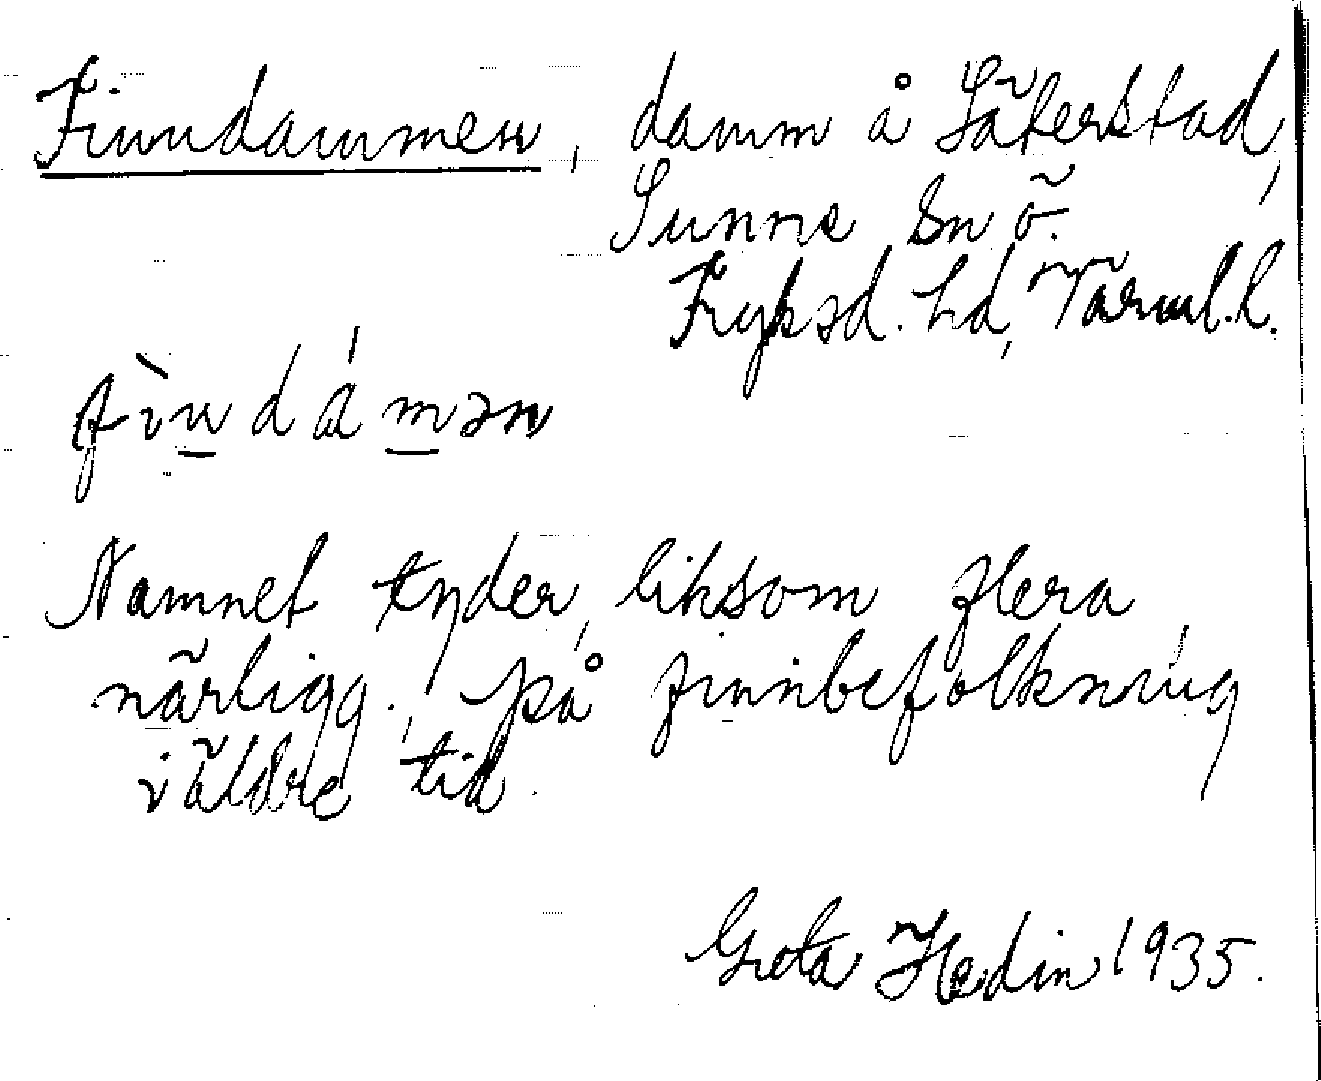 Finndammen, damm å Säterstad,
Sunne sn ö.
Fryksd. hd, Värml. l.
fìndámən
Namnet tyder, liksom flera
närligg., på finnbefolkning
i äldre tid.
Greta Hedin 1935.